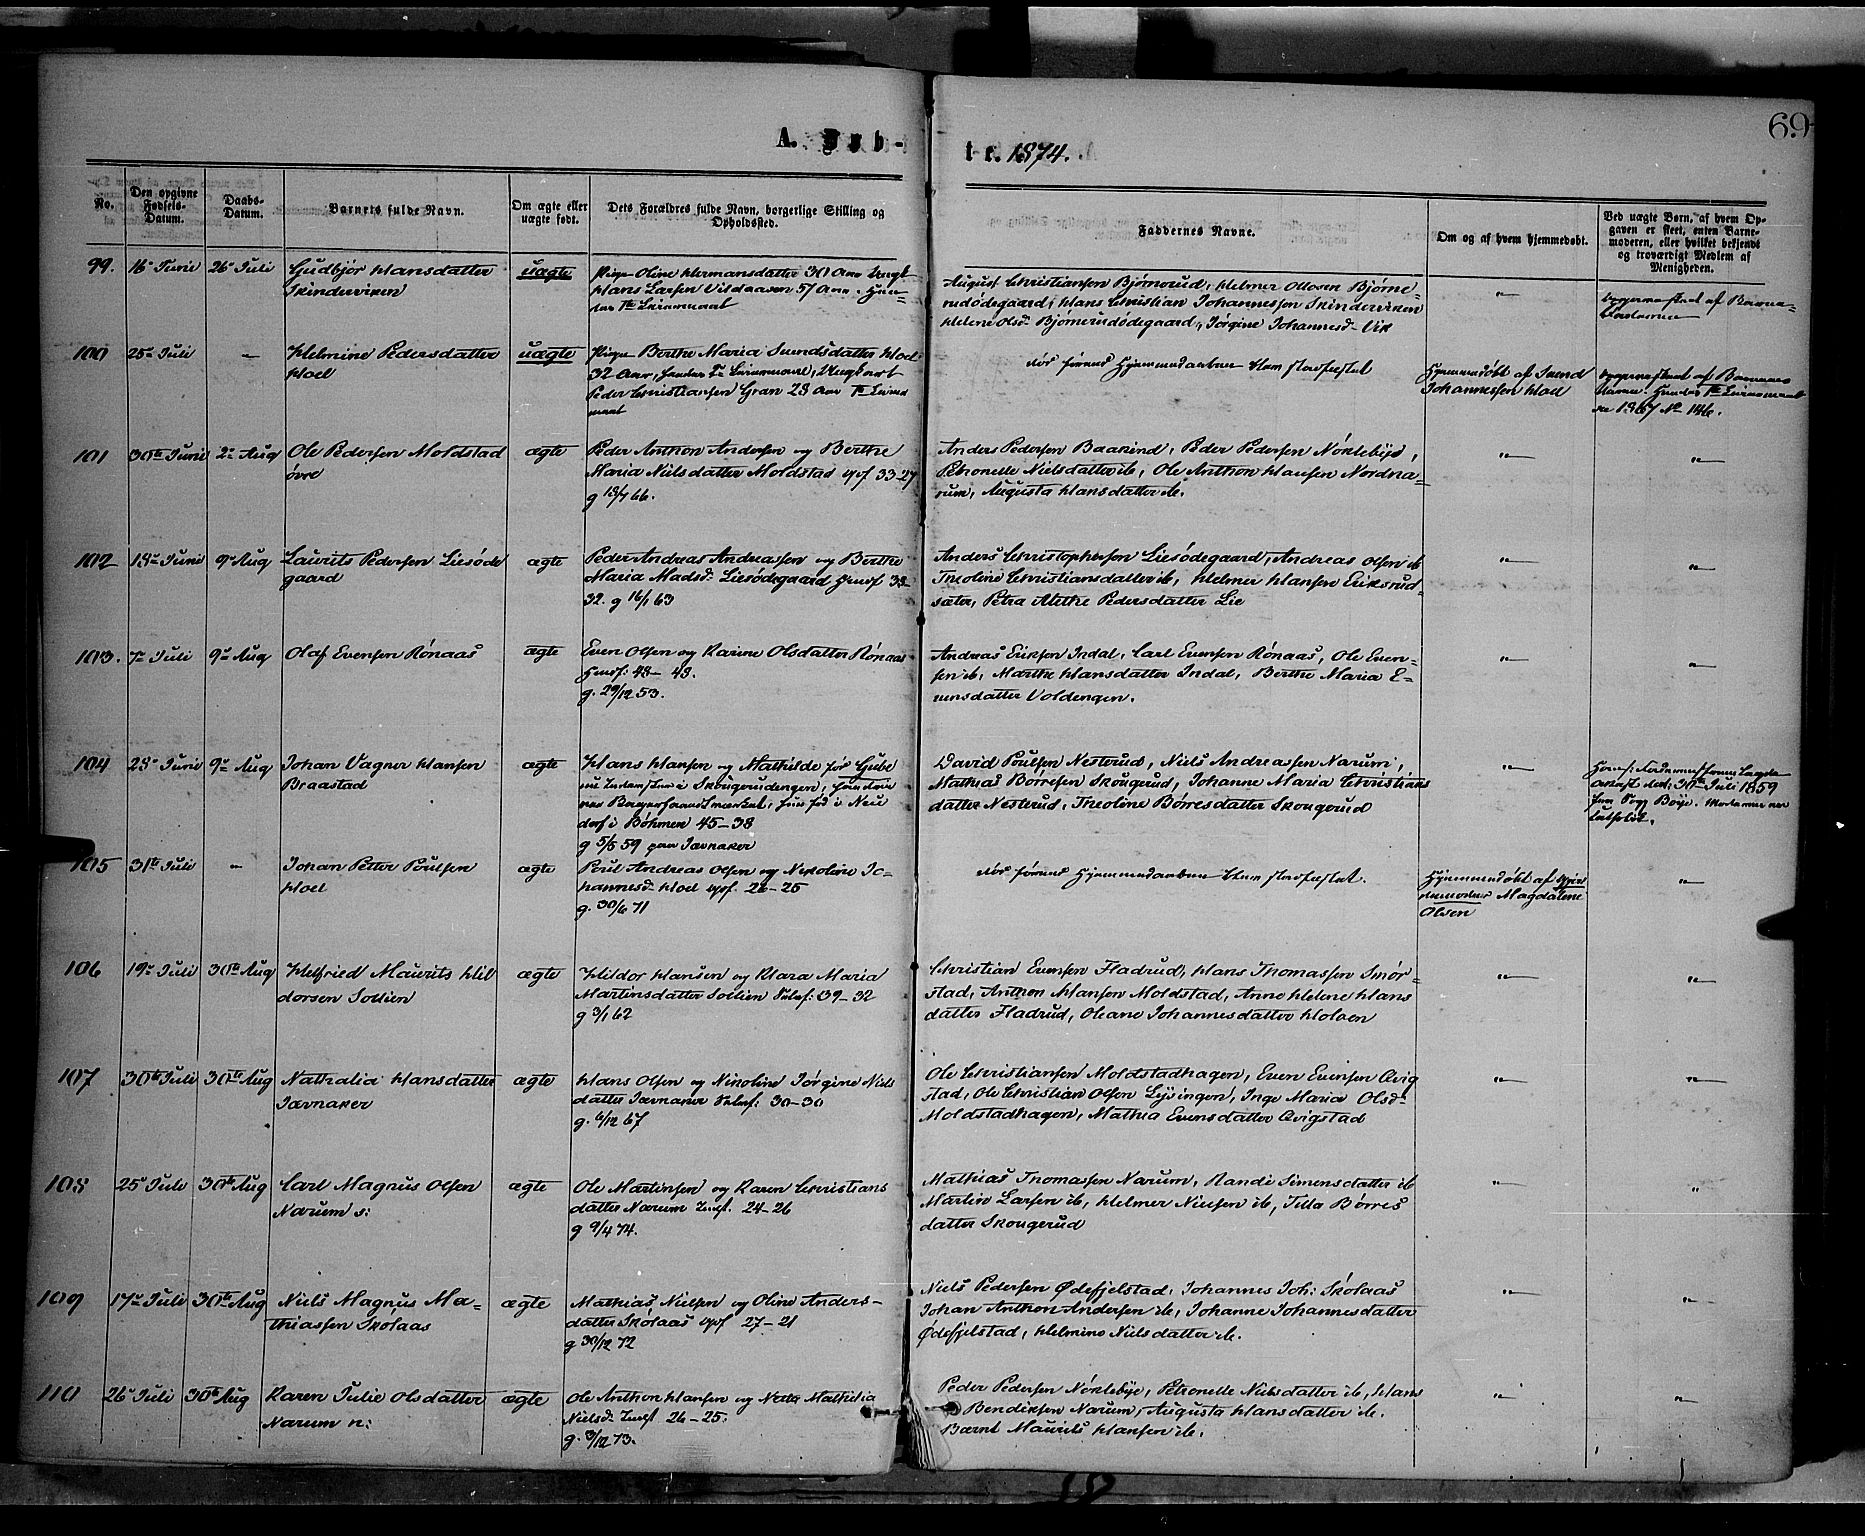 69
A. Døb-
te. 1874.
No.
Den opgivne Fødsels-Datum.
Daabs-Datum.
Barnets fulde Navn.
Om ægte eller uægte født.
Dets Forældres fulde Navn, borgerlige Stilling og Opholdssted.
Faddernes Navne.
Om og af hvem hjemmedøbt.
Ved uægte Børn, af hvem Opgaven er skeet, enten Barnemoderen, eller hvilket bekjendt og troværdigt Medlem af Menigheden.
99. 16de Juni 26de Juli Gudbjør Hansdatter
Skinderviken
uægte
Pige Oline Hermansdatter 30 Aar Ungk
Hans Larsen 57 Aar.
1ste Leiermaal
August Christiansen Bjørnerud, Helmer Olsen Bjørne-
rudødegaard, Hans Christian Johannessen Skinderviken
Helene Olsd. Bjørnerudødegaard, Jørgine Johannesd. Vik
af Barne-
100 25de Juli " Helmine Pedersdatter
Hoel
uægte
Pige Berthe Maria Svendsdatter Hoel
32 Aar, hendes 2de Leiermaal, Ungkarl
Peder Christiansen Gran 28 Aar 1ste Leier
maal
Død førend Hjemmedaaben blev stadfæstet
Hjemmedøbt af Svend
Johannessen Hoel
af Barnemo
1867 No 146.
101 30te Juni 2de Aug Ole Pedersen Moldstad
øvre
ægte
Peder Anthon Andersen og Berthe
Maria Nielsdatter Moldstad 33-27
g 18/1 66.
Anders Pedersen Baarind, Peder Pedersen Nøklebye,
Petronelle Nielsdatter ib, Ole Anthon Hansen Nordna-
rum, Augusta Hansdatter ib.
102 18de Juni 9de Aug Laurits Pedersen Liesøde
gaard
ægte
Peder Andreas Andreassen og Berthe
Maria Madsd. Liesødegaard 38
32. g 16/1 63
Anders Christophersen Liesødegaard, Andreas Olsen ib
Theoline Christiansdatter ib, Helmer Hansen Eriksrud-
sæter, Petra Alethe Pedersdatter Lie
103. 7de Juli 9de Aug Olaf Evensen Rønaas
ægte
Even Olsen og Karine Olsdatter Rønaas
48-43.
g. 29/12 53.
Andreas Eriksen Indal, Carl Evensen Rønaas, Ole Even-
sen ib, Marthe Hansdatter Indal, Berthe Maria E-
vensdatter Voldengen.
104 28de Juni 9de Aug Johan Vagner Hansen
Braastad
ægte
Hans Hansen og Mathilde
Skougerudengen,
født i Neu
dorf i Bøhmen 45-38
g 5/5 59 paa Jævnaker
David Poulsen Nesterud, Niels Andreassen Narum,
Mathias Børresen Skougerud, Johanne Maria Christians
datter Nesterud, Theoline Børresdatter Skougerud
30te Juli 1859
105 31te Juli " Johan Petter Poulsen
Hoel
ægte
Poul Andreas Olsen og Nikoline Jo-
hannesd. Hoel 26-25
g. 30/6 71
Død førend Hjemmedaaben blev stadfæstet.
Hjemmedøbt af Gjor
demoder Magdalene
Olsen
106 19de Juli 30te Aug Helfried Maurits Hil
dorsen Sollien
ægte
Hildor Hansen og Klara Maria
Martinsdatter Sollien 39-32
g 3/1 62
Christian Evensen Fladrud, Hans Thomassen Smør-
stad, Anthon Hansen Moldstad, Anne Helene Hans
datter Fladrud, Oleane Johannesdatter Holsen
107 30te Juli 30te Aug Nathalia Hansdatter
Jævnaker
ægte
Hans Olsen og Nikoline Jørgine Niels
datter Jævnaker 30-30
g. 6/12 67
Ole Christiansen Moldstadhagen, Even Evensen Qvig
stad, Ole Christian Olsen Lysingen, Inge Maria Olsd.
Moldstadhagen, Mathea Evensdatter Qvigstad
108 25de Juli 30te Aug Carl Magnus Olsen
Narum s:
ægte
Ole Martinsen og Karen Christians
datter Narum 24-26
g 9/4 74.
Mathias Thomassen Narum, Randi Simensdatter ib
Martin Larsen ib, Helmer Nielsen ib, Tilla Børres
datter Skougerud
109 17de Juli 30te Aug Niels Magnus Ma-
thiassen Skolaas
ægte
Mathias Nielsen og Oline Anders-
datter Skolaas 27-21
g 30/12 72
Niels Pedersen Ødefjelstad, Johannes Joh: Skolaas
Johan Anthon Andersen ib, Johanne Johannesdatter
Ødefjelstad, Helmine Nielsdatter ib.
110 26de Juli 30te Aug Karen Julie Olsdatter
Narum n:
ægte
Ole Anthon Hansen og Netta Mathilia
Nielsd. 26-25.
g. 3/12 73.
Peder Pedersen Nøklebye, Petronelle Nielsdatter ib, Hans
Bendiksen Narum, Augusta Hansdatter ib.
Bernt Maurits Hansen ib.